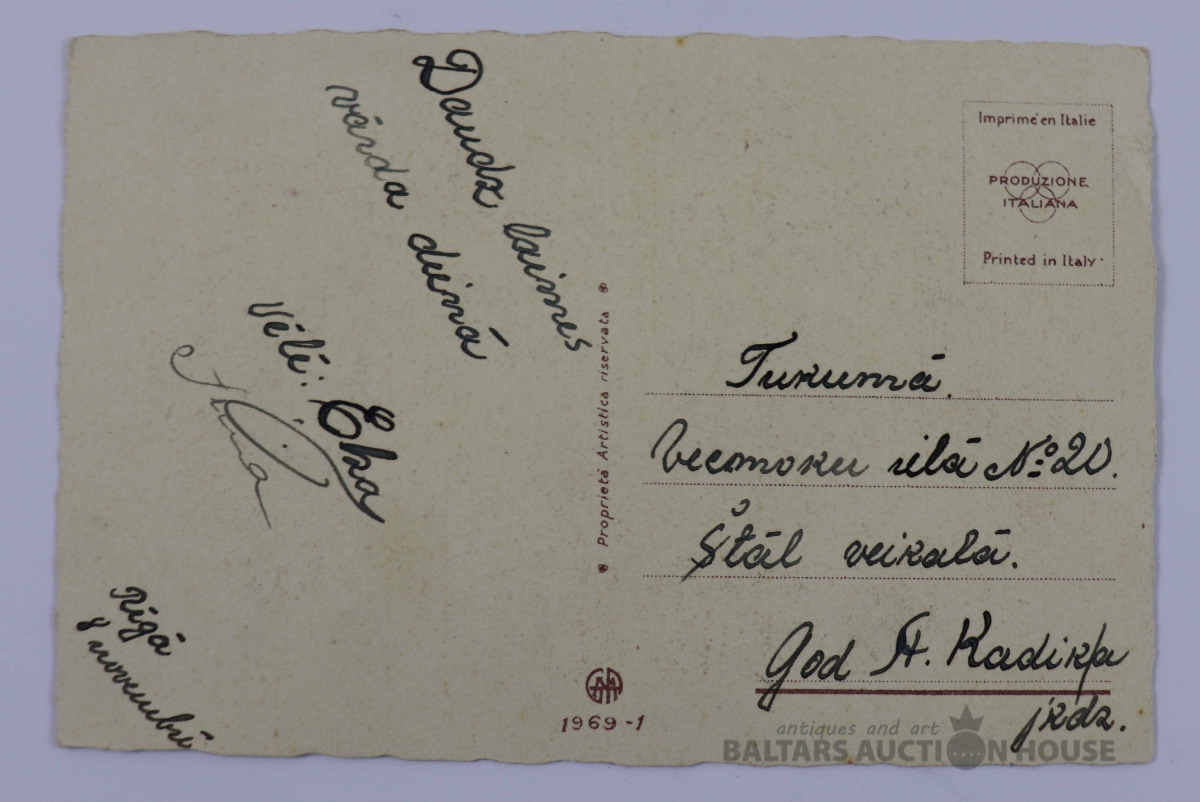 Daudz laimes
vārda dienā
Vēlē: Elza
Rīgā
8 novembrī
Proprietà Artistica riservata
1969-1
Imprimé en Italie
PRODUZIONE
ITALIANA
Printed in Italy
Tukumā.
Vecmoku ielā № 20.
Štāl veikalā.
God A. Kadiķa
jkdz.
antiques and art
BALTARS AUCTION HOUSE